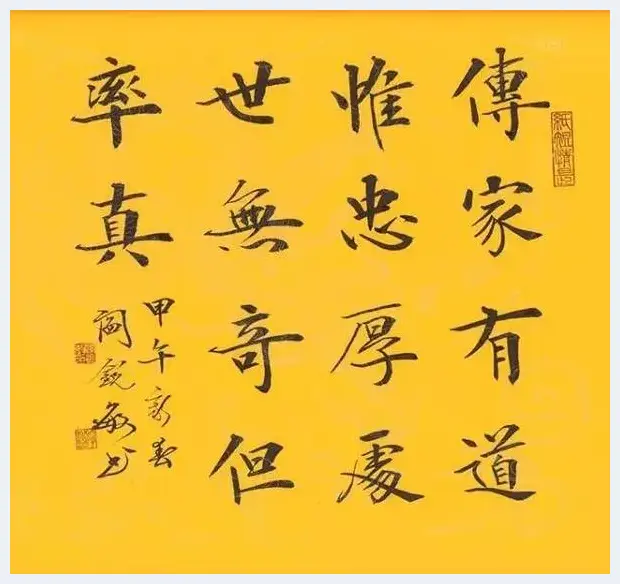 傳家有道
惟忠厚處
世無奇但
率真
甲午新春
閻銳敏書